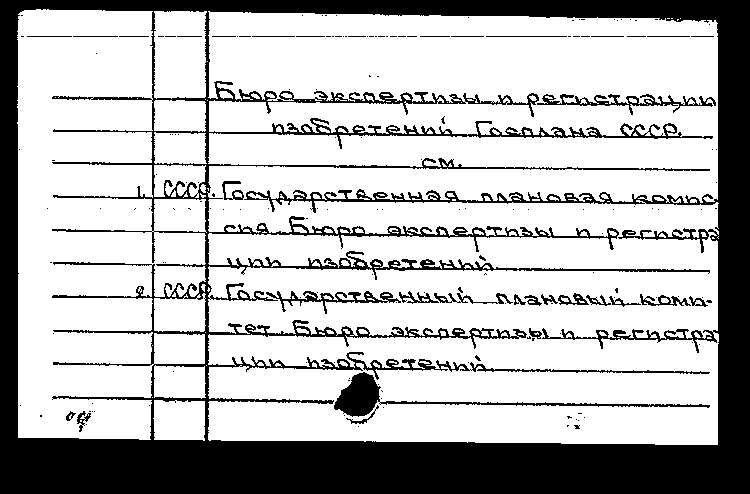 Бюро экспертизы и регистрации
изобретений Госплана СССР.
см.
1. СССР. Государственная плановая комис
сия. Бюро экспертизы и регистра
ции изобретений.
2. СССР. Государственный плановый коми-
тет. Бюро экспертизы и регистра
ции изобретений.